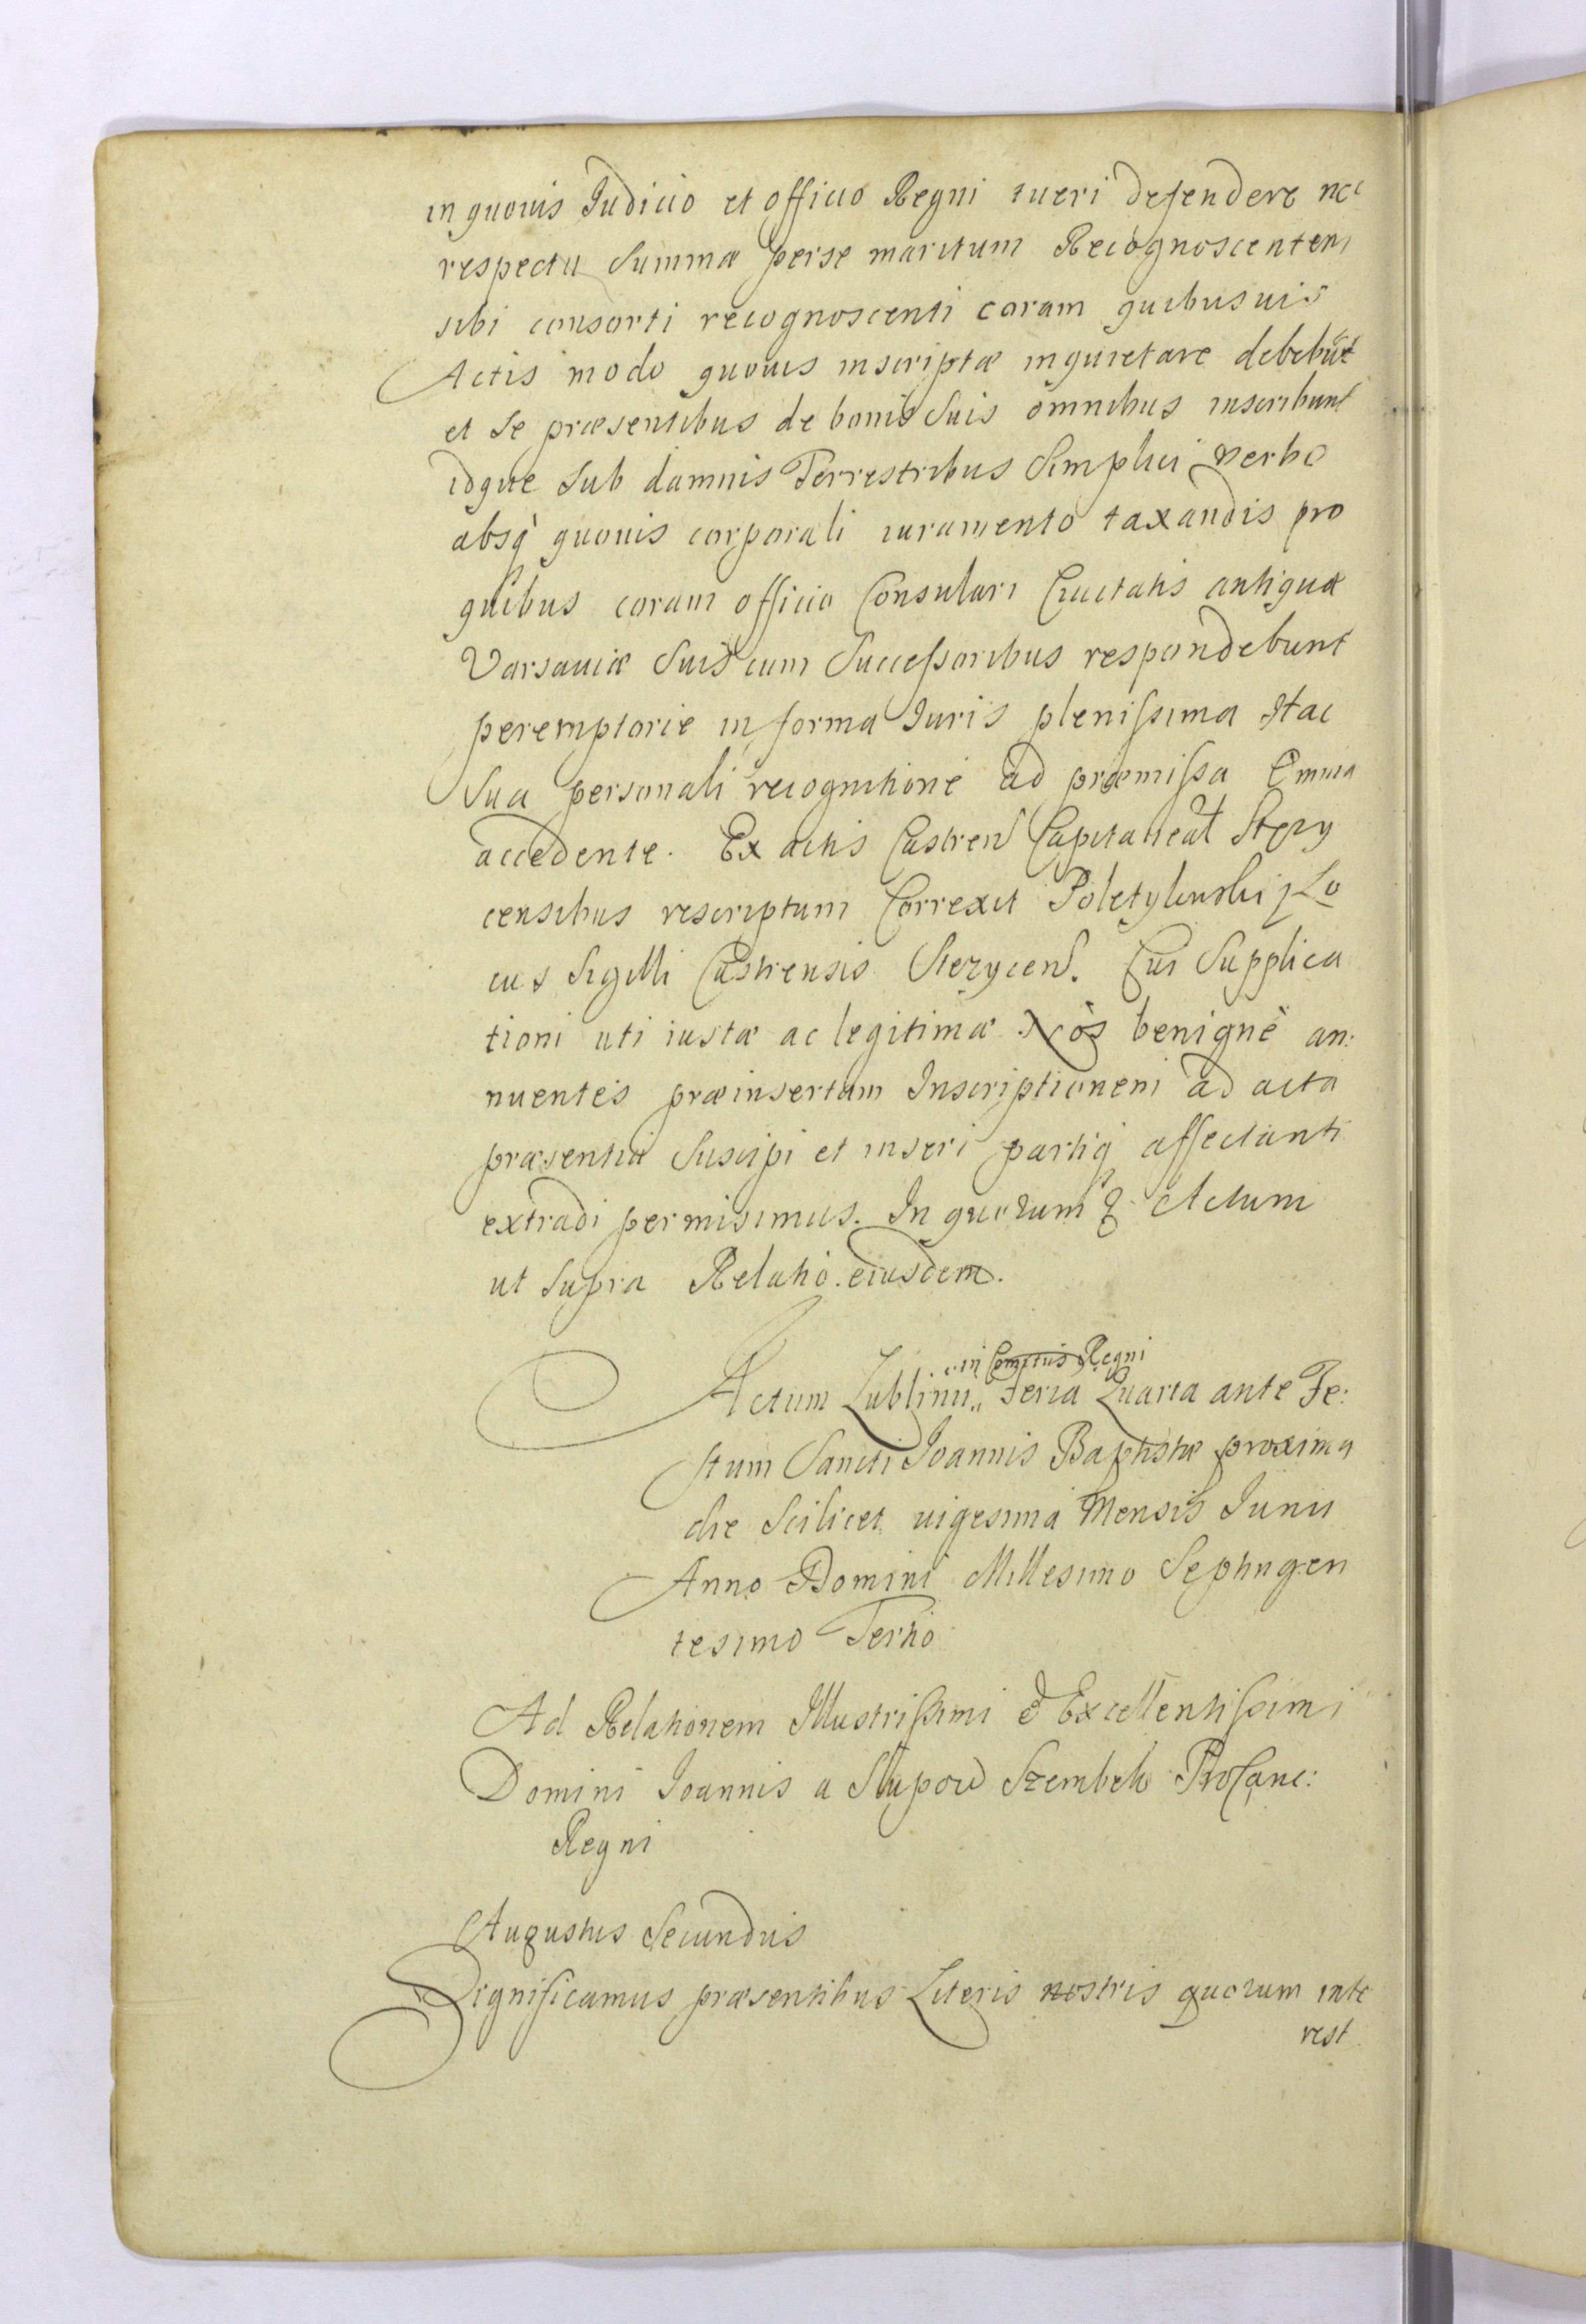 in quouis Judicio et officio Regni tueri defendere nec
respectu Summæ per se maritum Recognoscentem
sibi consorti recognoscenti coram quibusuis
Actis modo quouis inscriptæ inquietare debebūt
et se præsentibus de bonis Suis omnibus inscribunt
idque Sub damnis Terrestribus Simplici verbo
absq̀ quouis corporali iuramento taxandis pro
quibus coram officio Consulari Ciuitatis antiquæ
Varsauiæ Suis cum Succeſsoribus respondebunt
peremptorie in forma Iuris pleniſsima Hac
Sua personali recognitione ad præmiſsa Omnia
accedente. Ex actis Castren Capitaneal Stęzy
censibus rescriptum Correxit Poletylowski Lo
cus Sigilli Castrensis Stezycen. Cui Supplica
tioni uti iustæ ac legitimæ Nos benignè an:
nuentes præinsertam Inscriptionem ad acta
præsentia Suscipi et inseri partiq̀ affectanti
extradi permisimus. In quorum & Actum
ut Supra Relatio eiusdem.
in Comitiis Regni
Actum Lublinii,, Feria Quarta ante Fe:
stum Sancti Joannis Baptistæ proxima
die Scilicet uigesima Mensis Junii
Anno Domini Millesimo Septingen
tesimo Tertio
Ad Relationem Illustriſsimi & Excellentiſsimi
Domini Joannis a Slupow Szembek ProCanc:
Regni
Augustus Secundus
Significamus præsentibus Literis nostris quorum inte
rest